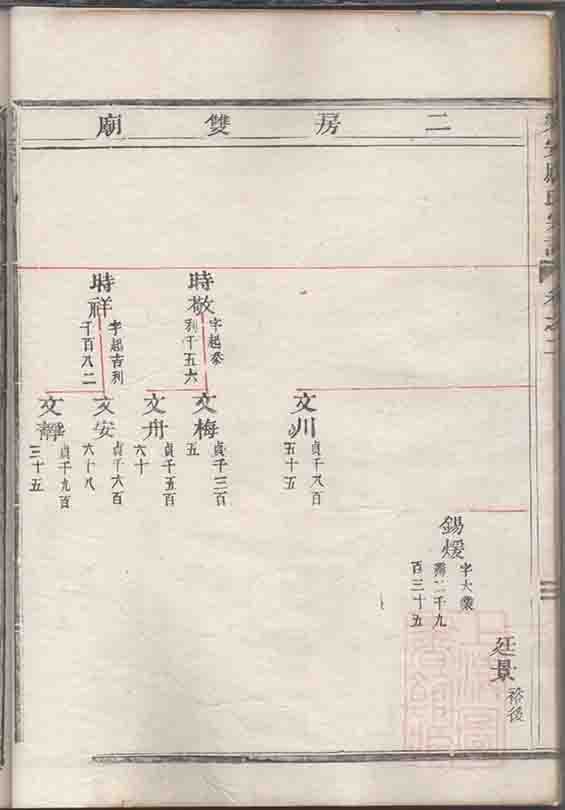 二房雙廟
廷景
裕後
錫煖
字大業
千九
百三十五
文川
貞千八百
五十五
時敬
字起泰
利千五六
文梅
貞千三百
五
文舟
貞千五百
六十
時祥
字起吉利
千百八二
文安
貞千六百
六十八
文靜
貞千九百
三十五